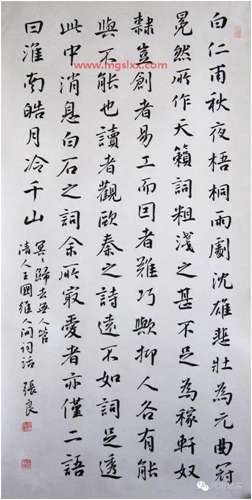 白仁甫秋夜梧桐雨劇沈雄悲壯為元曲冠
冕然所作天籟詞粗淺之甚不足為稼軒奴
隸豈創者易工而因者難巧歟抑人各有能
與不能也讀者觀歐秦之詩遠不如詞足透
此中消息白石之詞余所最愛者亦僅二語
曰淮南皓月冷千山
冥冥歸去無人管
清人王國維人間詞話 張良
www.mgslxx.com